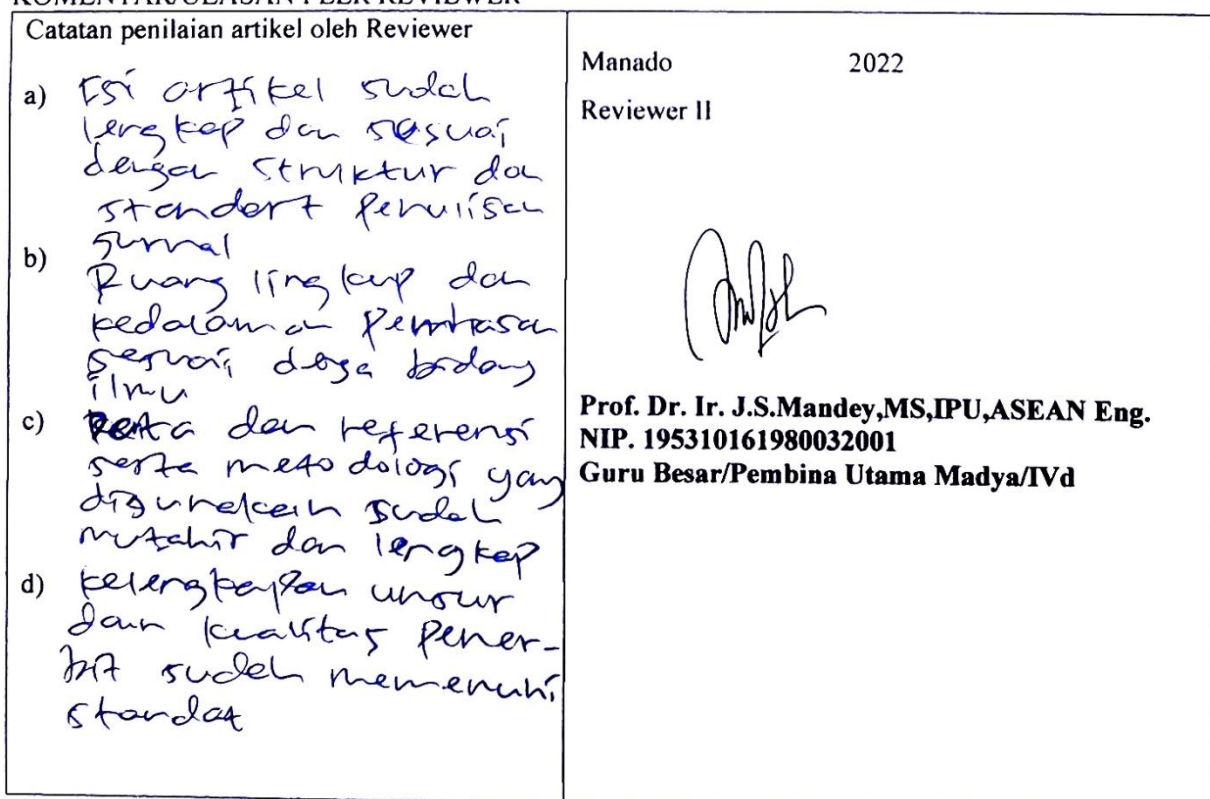 KOMENTAR/ULASAN PEER REVIEWER
Catatan penilaian artikel oleh Reviewer
a) Isi artikel sudah
lengkap dan sesuai
dengan struktur dan
standart penulisan
jurnal
b) Ruang lingkup dan
kedalaman pembahasan
sesuai dengan bidang
ilmu
c) Data dan referensi
serta metodologi yang
digunakan sudah
mutahir dan lengkap
d) kelengkapan unsur
dan kualitas pener-
bit sudah memenuhi
standar
Manado 2022
Reviewer II
Prof. Dr. Ir. J.S.Mandey,MS,IPU,ASEAN Eng.
NIP. 195310161980032001
Guru Besar/Pembina Utama Madya/IVd